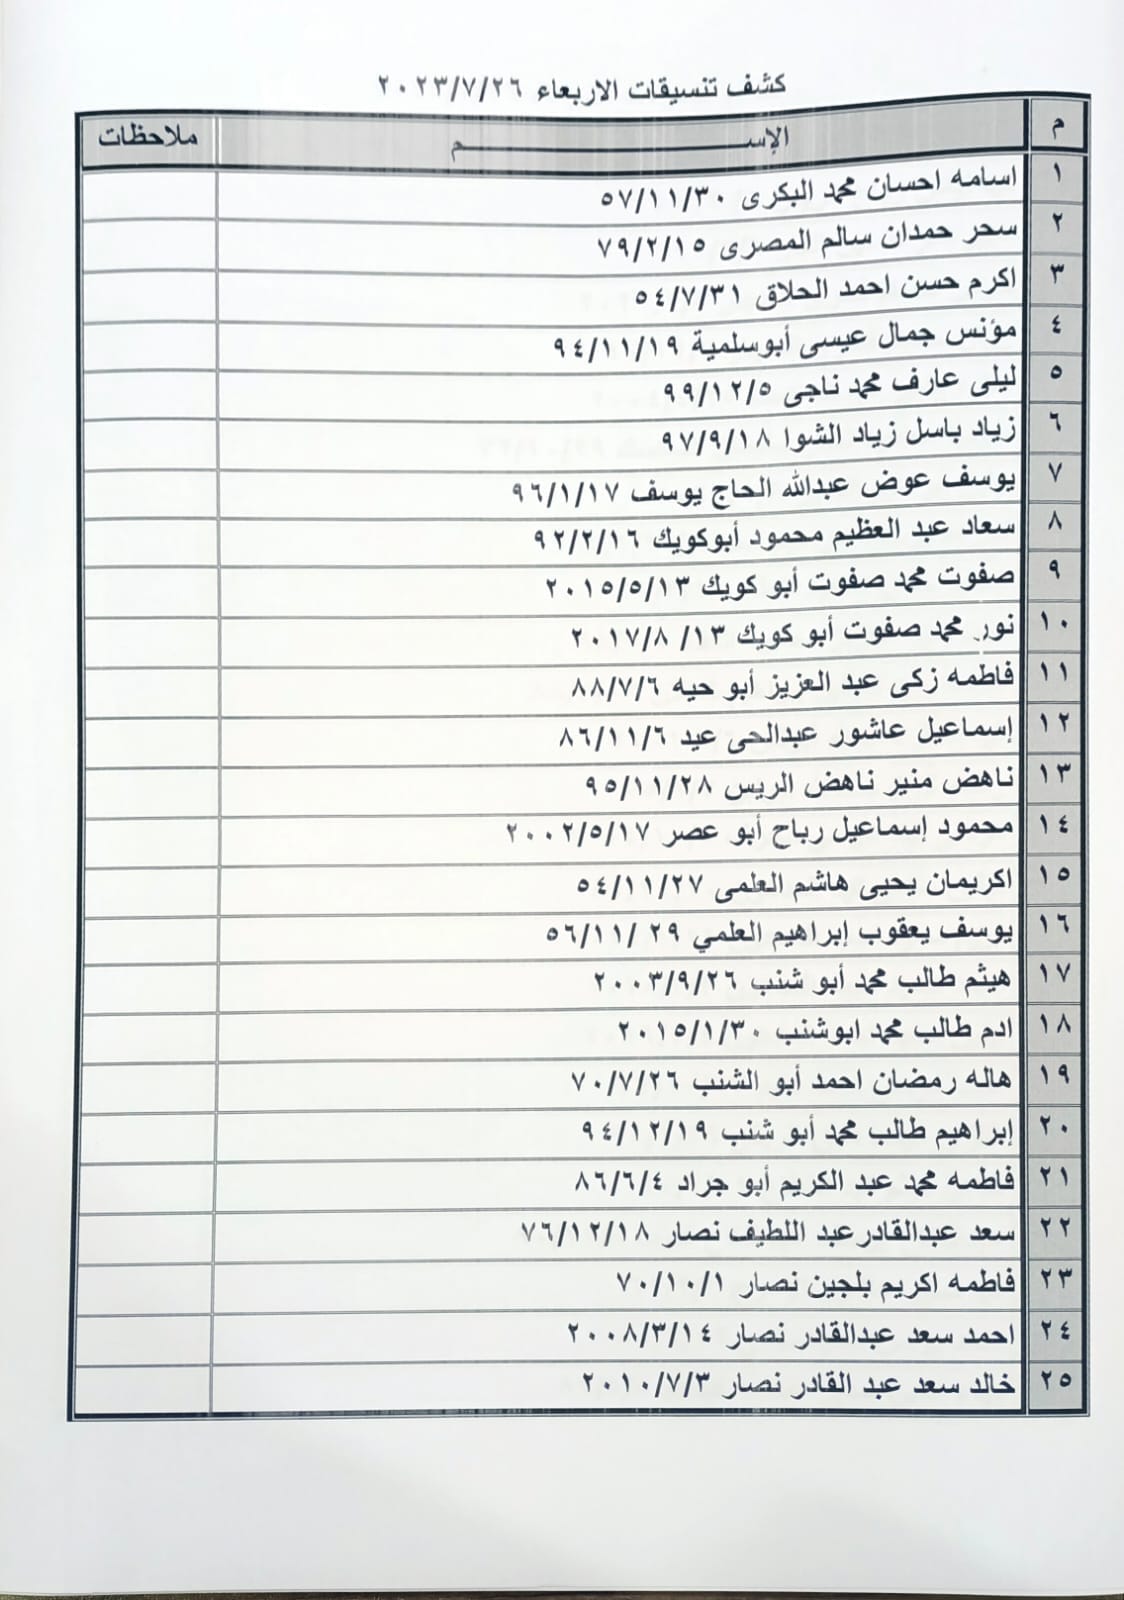 كشف تنسيقات الاربعاء ٢٠٢٣/٧/٢٦
م الإســـــــــــــــــــم ملاحظات
١ اسامه احسان محمد البكرى ٥٧/١١/٣٠
٢ سحر حمدان سالم المصرى ٧٩/٢/١٥
٣ اكرم حسن احمد الحلاق ٥٤/٧/٣١
٤ مؤنس جمال عيسى أبوسلمية ٩٤/١١/١٩
٥ ليلى عارف محمد ناجى ٩٩/١٢/٥
٦ زياد باسل زياد الشوا ٩٧/٩/١٨
٧ يوسف عوض عبدالله الحاج يوسف ٩٦/١/١٧
٨ سعاد عبد العظيم محمود أبوكويك ٩٢/٢/١٦
٩ صفوت محمد صفوت أبو كويك ٢٠١٥/٥/١٣
١٠ نور محمد صفوت أبو كويك ١٣/ ٢٠١٧/٨
١١ فاطمه زكى عبد العزيز أبو حيه ٨٨/٧/٦
١٢ إسماعيل عاشور عبدالحى عيد ٨٦/١١/٦
١٣ ناهض منير ناهض الريس ٩٥/١١/٢٨
١٤ محمود إسماعيل رباح أبو عصر ٢٠٠٢/٥/١٧
١٥ اكريمان يحيى هاشم العلمى ٥٤/١١/٢٧
١٦ يوسف يعقوب إبراهيم العلمي ٢٩ /٥٦/١١
١٧ هيثم طالب محمد أبو شنب ٢٠٠٣/٩/٢٦
١٨ ادم طالب محمد ابوشنب ٢٠١٥/١/٣٠
١٩ هاله رمضان احمد أبو الشنب ٧٠/٧/٢٦
٢٠ إبراهيم طالب محمد أبو شنب ٩٤/١٢/١٩
٢١ فاطمه محمد عبد الكريم أبو جراد ٨٦/٦/٤
٢٢ سعد عبدالقادرعبد اللطيف نصار ٧٦/١٢/١٨
٢٣ فاطمه اكريم بلجين نصار ٧٠/١٠/١
٢٤ احمد سعد عبدالقادر نصار ٢٠٠٨/٣/١٤
٢٥ خالد سعد عبد القادر نصار ٢٠١٠/٧/٣